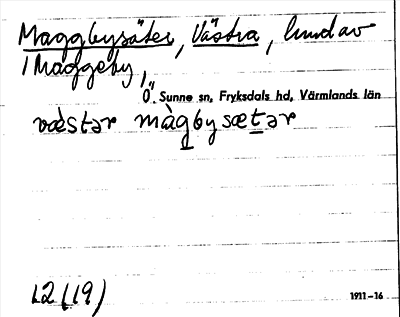 Maggbysäter, Västra, hmd av
1 Maggeby,
Ö. Sunne sn, Fryksdals hd, Värmlands län
væ̀stər màgbysætər
12 (19)
1911-16